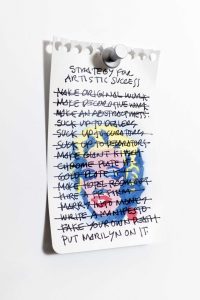 STRATEGY FOR
ARTISTIC SUCCESS
MAKE ORIGINAL WORK
MAKE DECORATIVE WORK
MAKE AN ABSTRACT MESS
SUCK UP TO DEALERS
SUCK UP TO CURATORS
SUCK UP TO DECORATORS
MAKE GIANT KITSCH
CHROME PLATE IT
GOLD PLATE IT
MAKE HOTEL ROOM ART
HIRE A PR FIRM
MARRY INTO MONEY
WRITE A MANIFESTO
FAKE YOUR OWN DEATH
PUT MARILYN ON IT